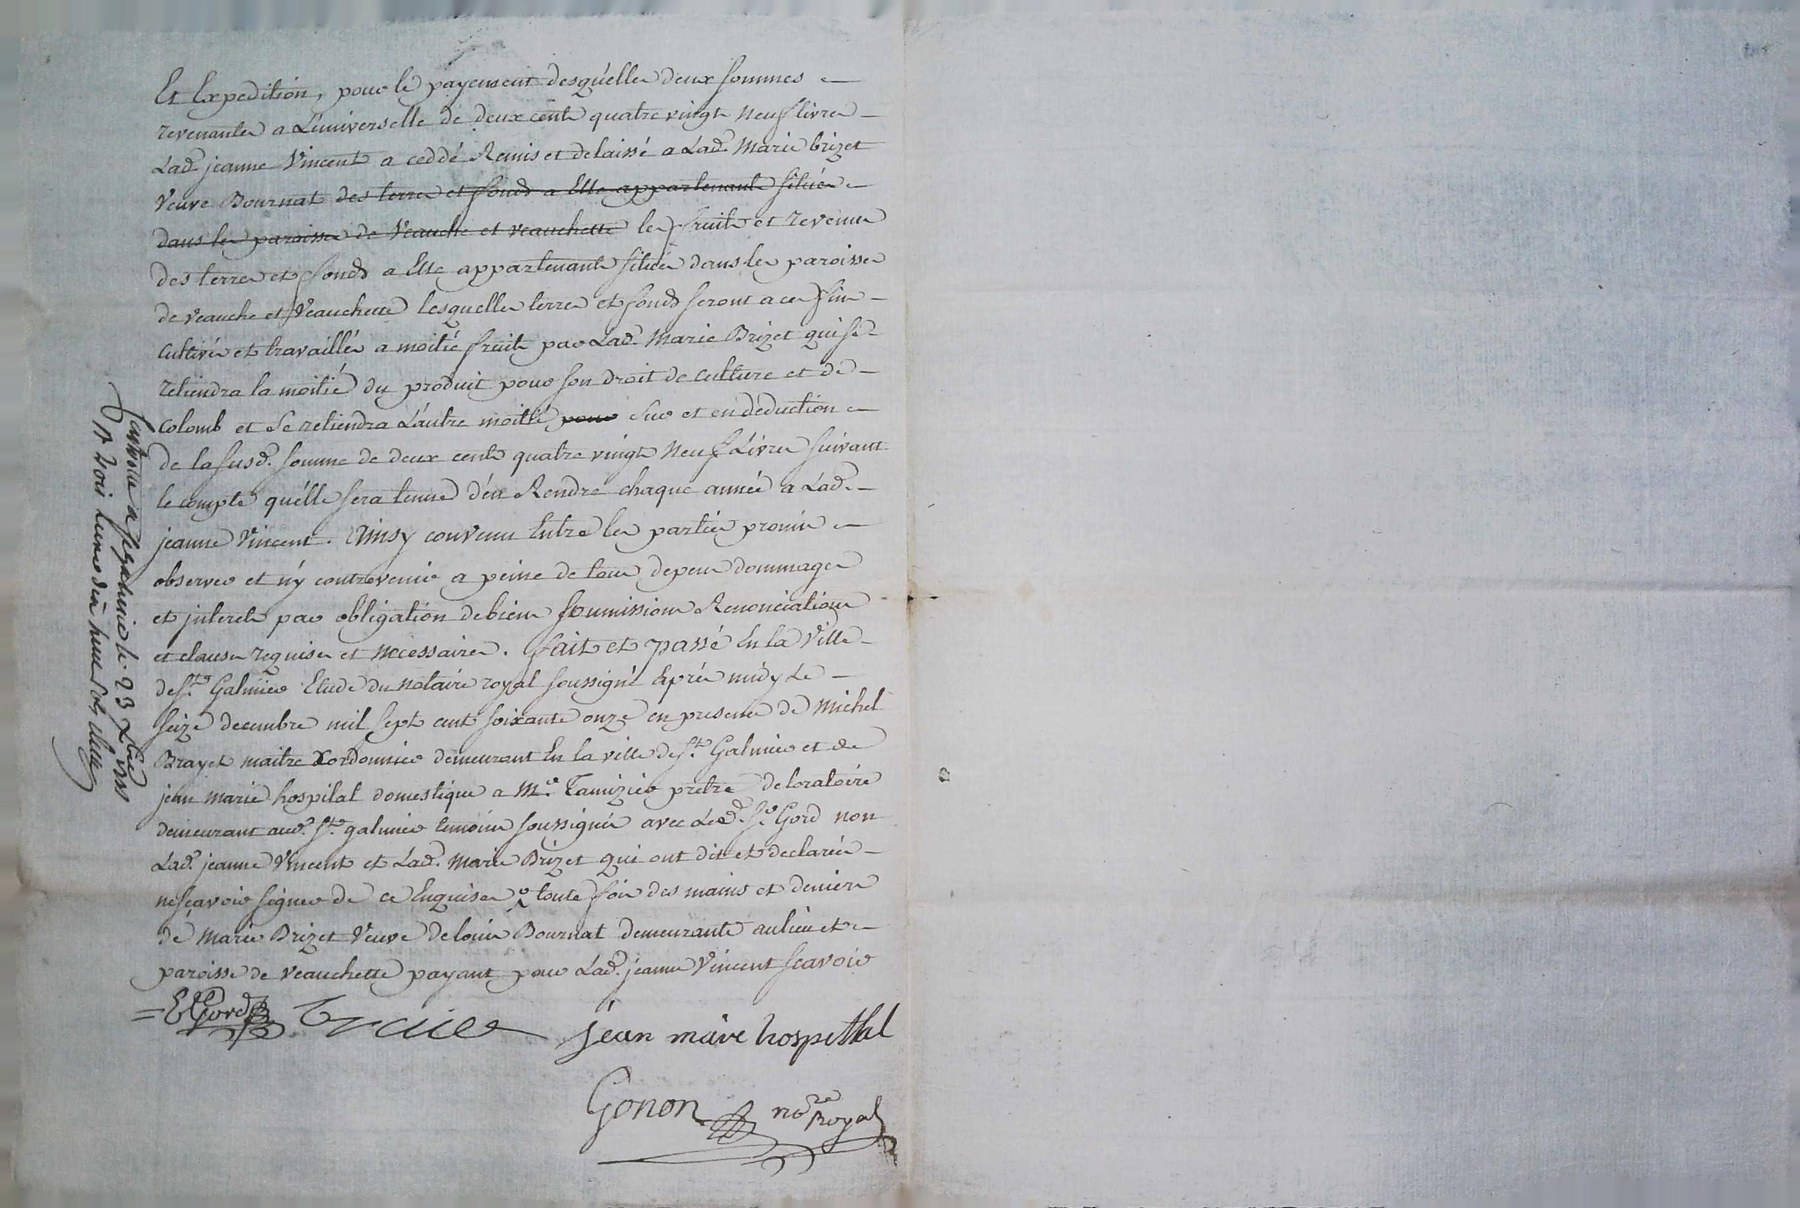 Et Expedition, pour le payement desquelles deux sommes
revenantes a L'universelle de deux cents quatre vingt neuf livres
Lad. jeanne Vincent a ceddé Remis et delaissé a Lad. Marie brizet
Veuve Bournat des terres et fonds a Elle appartenants situés
dans les paroisses de Veauche et veauchette les fruits et revenus
des terres et fonds a Elle appartenants situés dans les paroisses
de veauche et Veauchette lesquelles terres et fonds seront a ces fins
Cultivés et travaillés a moitié fruits par Lad. Marie Brizet qui se
retiendra la moitié du produit pour son droit de culture et de
Colomb et se retiendra L'autre moitié pour sur et en deduction
de la susd. somme de deux cents quatre vingt neuf Livres suivant
le compte qu'elle sera tenue d'en Rendre chaque année a Lad.
jeanne Vincent. Ainsy convenu Entre les parties promis
observer et n'y contrevenir a peine de tous depens dommages
et interets par obligation de biens soumissions Renonciations
et clauses requises et necessaires. fait et passé En la Ville
de St. Galmier Etude du notaire royal soussigné Après midy Le
seize decembre mil sept cent soixante onze en presence de Michel
Brayet maitre Cordonnier demeurant En la ville de St. Galmier et de
jean marie hospital domestique a Mr. Tamizier prêtre de loratoire
demeurant aud. St. galmier temoins soussignés avec Led. Sr. Gord non
Lad. jeanne Vincent et Lad. Marie Brizet qui ont dit et declarée
ne scavoir signer de ce Enquises toute fois des mains et deniers
de Marie Brizet Veuve de louis Bournat demeurante au lieu et
paroisse de veauchette payant pour Lad. jeanne Vincent scavoir
= E Gord
jean marie hospithal
Gonon nore Royal
a st galmier le 23 Xbre 1771